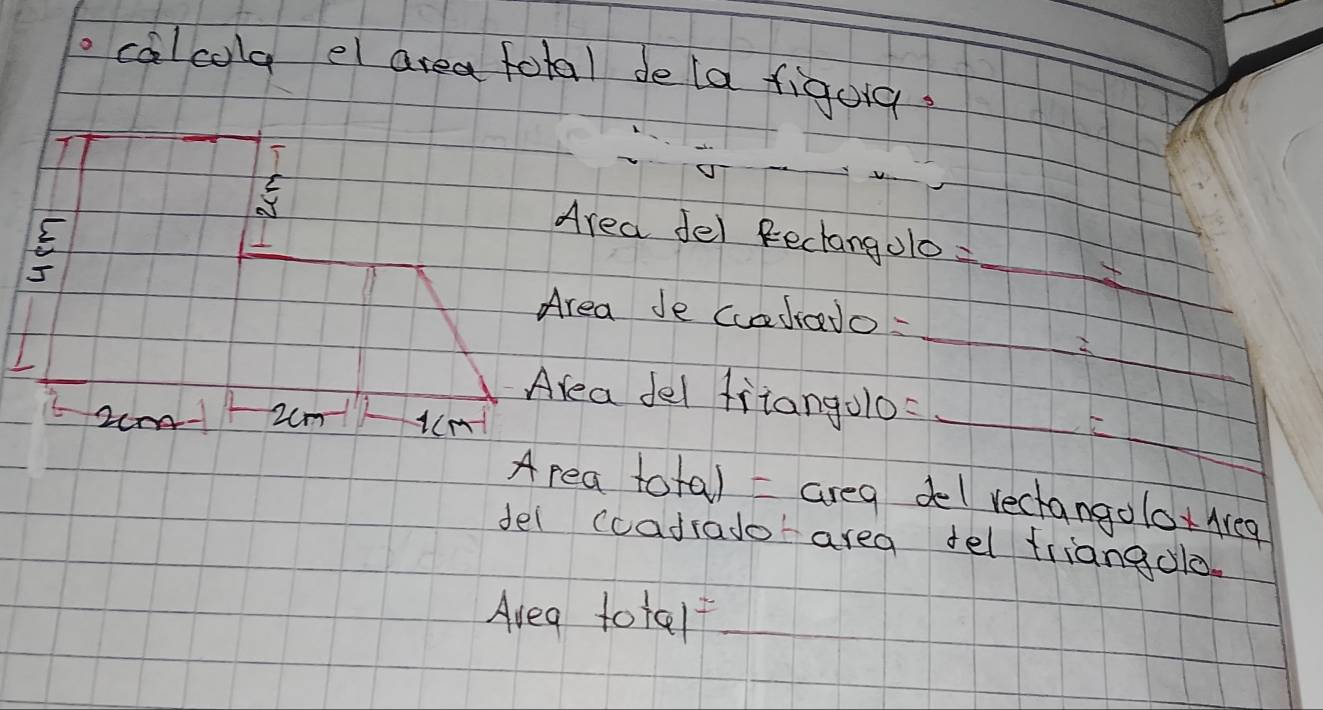 calcula el area total de la figura.
2cm
4cm
2cm 2cm 1cm
Area del Rectangulo = ____ = ____
Area de cuadrado = ____ = ____
Area del triangulo = ____ = ____
Area total = area del rectangulo + Area
del cuadrado + area del triangulo.
Area total = ____